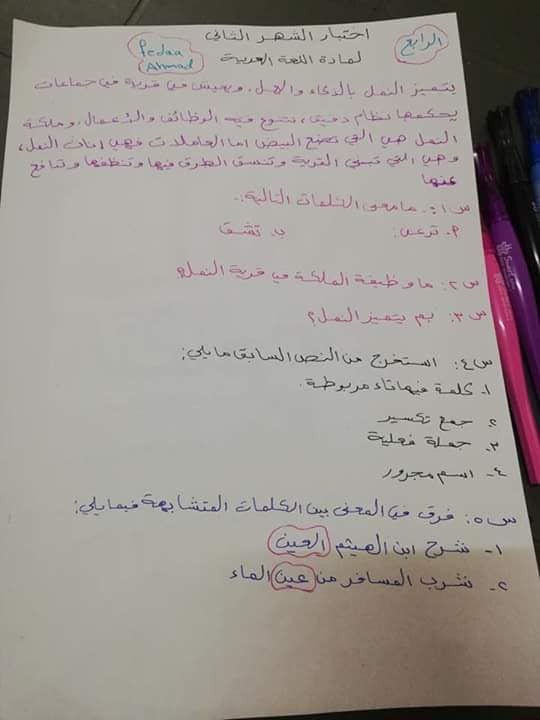 الرابع
اختبار الشهر الثاني
لمادة اللغة العربية
Pedaa
Ahmad
يتميز النمل بالذكاء والعمل. ويعيش في قرية في جماعات
يحكمها نظام دقيق، تتنوع فيه الوظائف والأعمال. وملكة
النمل هي التي تضع البيض اما العاملات فهي إناث النمل،
وهي التي تبني القرية وتشق الطرق فيها وتنظفها وتدافع
عنها
س١: ما معنى الكلمات التالية:
٢. ترعى: ب. تشق
س٢: ما وظيفة الملكة في قرية النمل؟
س٣: بم يتميز النمل؟
س٤: استخرج من النص السابق ما يلي:
١. كلمة فيها تاء مربوطة.
٢. جمع تكسير
٣- جملة فعلية
٤- اسم مجرور
س٥: فرق في المعنى بين الكلمات المتشابهة فيما يلي:
١- شرح ابن الهيثم العين
٢- شرب المسافر من عين الماء